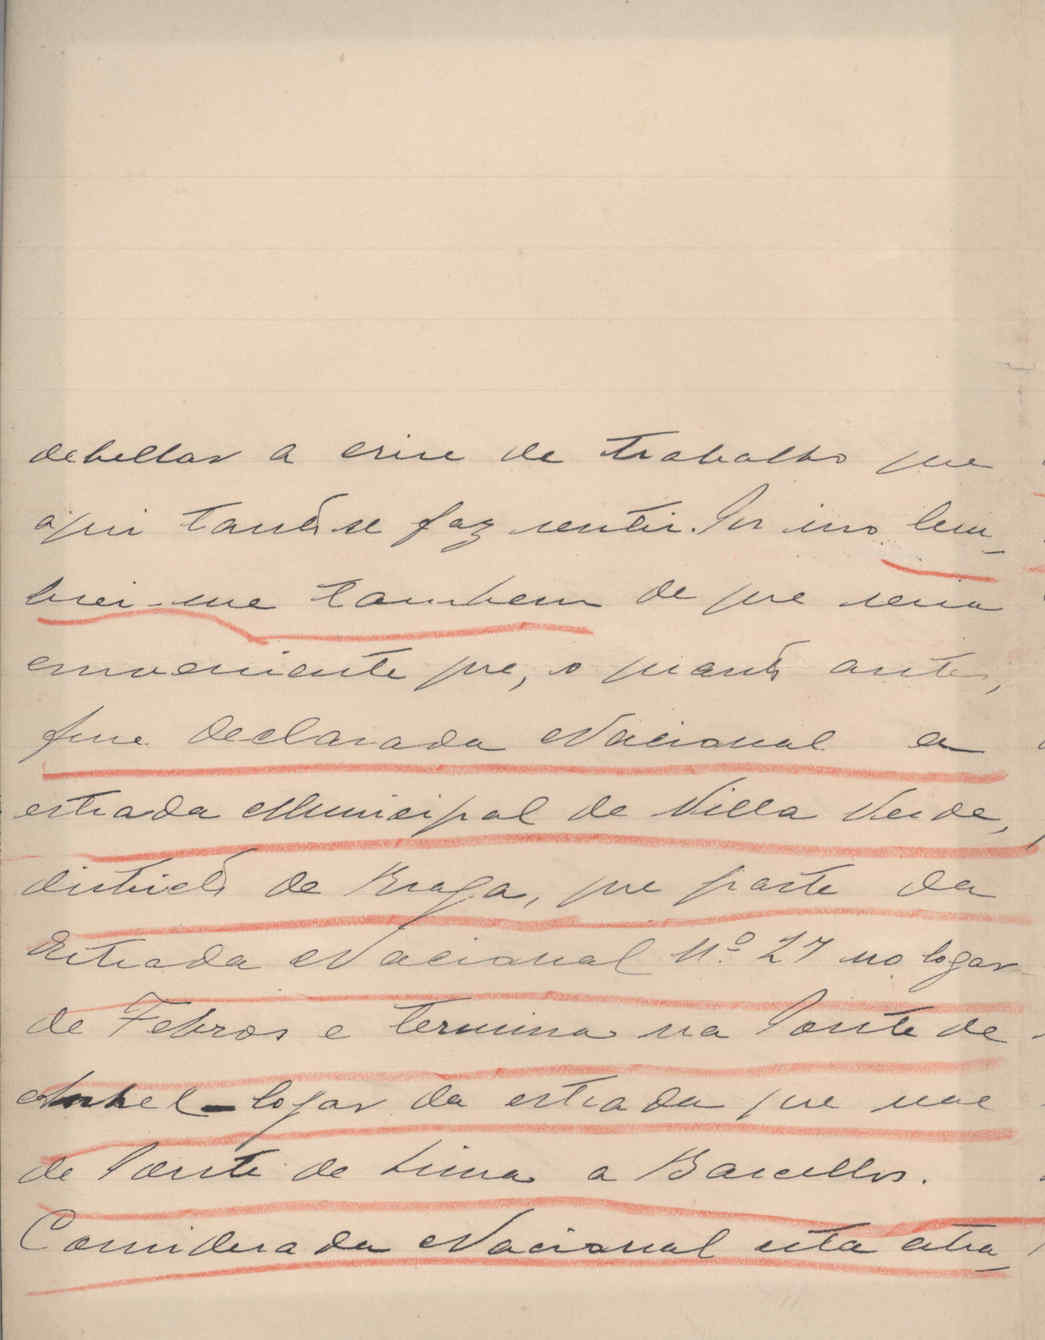 debellar a crise de trabalho que
aqui tanto se faz sentir. Por isso lem-
brei-me tambem de que seria
conveniente que, o quanto antes,
fosse declarada Nacional a
estrada Municipal de Villa Verde,
districto de Braga, que parte da
Estrada Nacional Nº 27 no logar
de Febros e termina na Ponte de
Anhel - logar da estrada que vae
de Ponte de Lima a Barcellos.
Considerada Nacional esta estra-